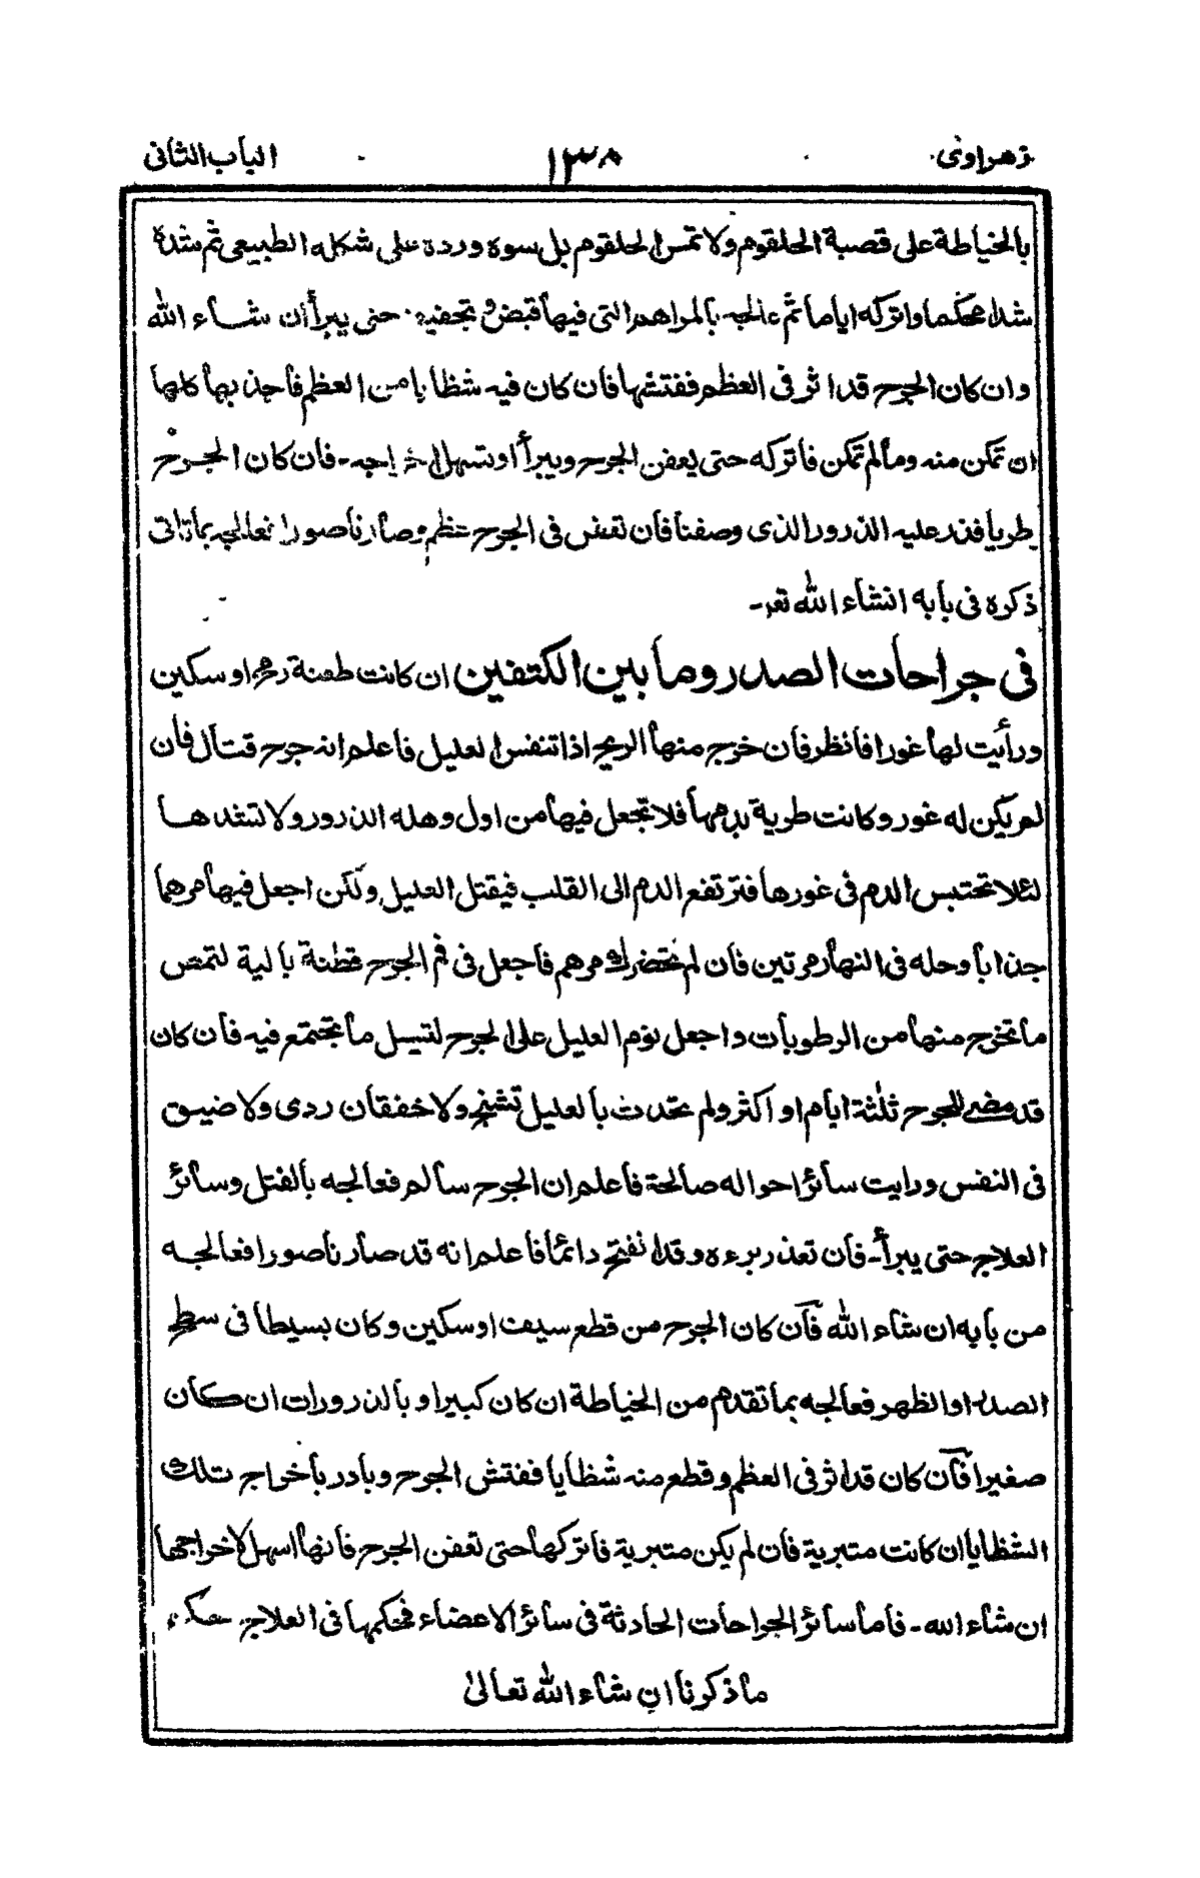 زهراوى ١٣٨ الباب الثانى
بالخياطة على قصبة الحلقوم ولا تمس الحلقوم بل سوه ورده على شكله الطبيعى ثم شده
شدا محكما واتركه اياما ثم عالجه بالمراهم التى فيها قبض وتجفيف حتى يبرأ ان شاء الله
وان كان الجرح قد اثر فى العظم ففتشها فان كان فيه شظايا من العظم فاجذبها كلها
ان تمكن منه وما لم تمكن فاتركه حتى يعفن الجرح ويبرأ او تسهل اخراجه - فان كان الجرح
طريا فذر عليه الذرور الذى وصفنا فان نقض فى الجرح عظم وصار ناصورا فعالجه بما تاتى
ذكره فى بابه انشاء الله تع -
فى جراحات الصدر وما بين الكتفين ان كانت طعنة رمح او سكين
ورأيت لها غورا فانظر فان خرج منها الريح اذا تنفس العليل فاعلم انه جرح قتال فان
لم يكن له غور وكانت طرية بدمها فلا تجعل فيها من اول وهله الذرور ولا تشدها
لئلا تحتبس الدم فى غورها فترتفع الدم الى القلب فيقتل العليل ولكن اجعل فيها مرهما
جذابا وحله فى النهار مرتين فان لم تحضرك مرهم فاجعل فى فم الجرح قطنة بالية لتمص
ما تخرج منها من الرطوبات واجعل نوم العليل على الجرح لتسيل ما تجتمع فيه فان كان
قد مضى للجرح ثلثة ايام او اكثر ولم تحدث بالعليل تشنج ولا خفقان ردى ولا ضيق
فى النفس ورايت سائر احواله صالحة فاعلم ان الجرح سالم فعالجه بالفتل وسائر
العلاج حتى يبرأ - فان تعذر برءه وقد انفتح دائما فاعلم انه قد صار ناصورا فعالجه
من بابه ان شاء الله فآن كان الجرح من قطع سيف او سكين وكان بسيطا فى سطح
الصدر او الظهر فعالجه بما تقدم من الخياطة ان كان كبيرا وبالذرورات ان كان
صغيرا فآن كان قد اثر فى العظم وقطع منه شظايا ففتش الجرح وبادر باخراج تلك
الشظايا ان كانت متبرية فان لم يكن متبرية فاتركها حتى تعفن الجرح فانها اسهل لاخراجها
ان شاء الله - فاما سائر الجراحات الحادثة فى سائر الاعضاء فحكمها فى العلاج حكم
ما ذكرنا ان شاء الله تعالى